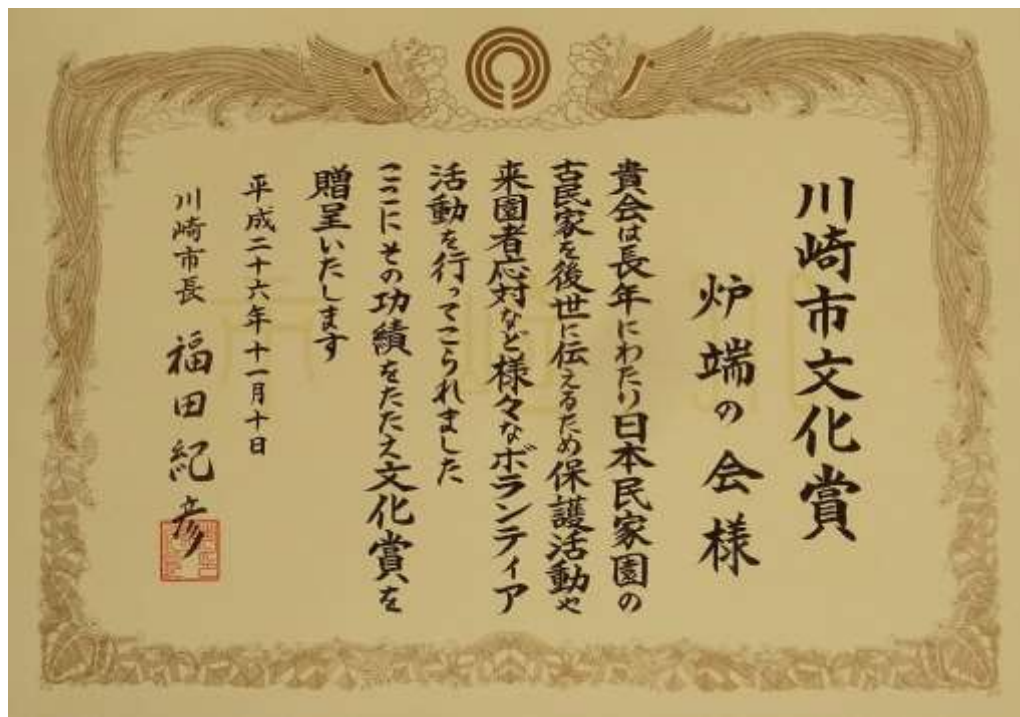 川崎市文化賞
炉端の会様
貴会は長年にわたり日本民家園の
古民家を後世に伝えるため保護活動や
来園者応対など様々なボランティア
活動を行ってこられました
ここにその功績をたたえ文化賞を
贈呈いたします
平成二十六年十一月十日
川崎市長 福田紀彦